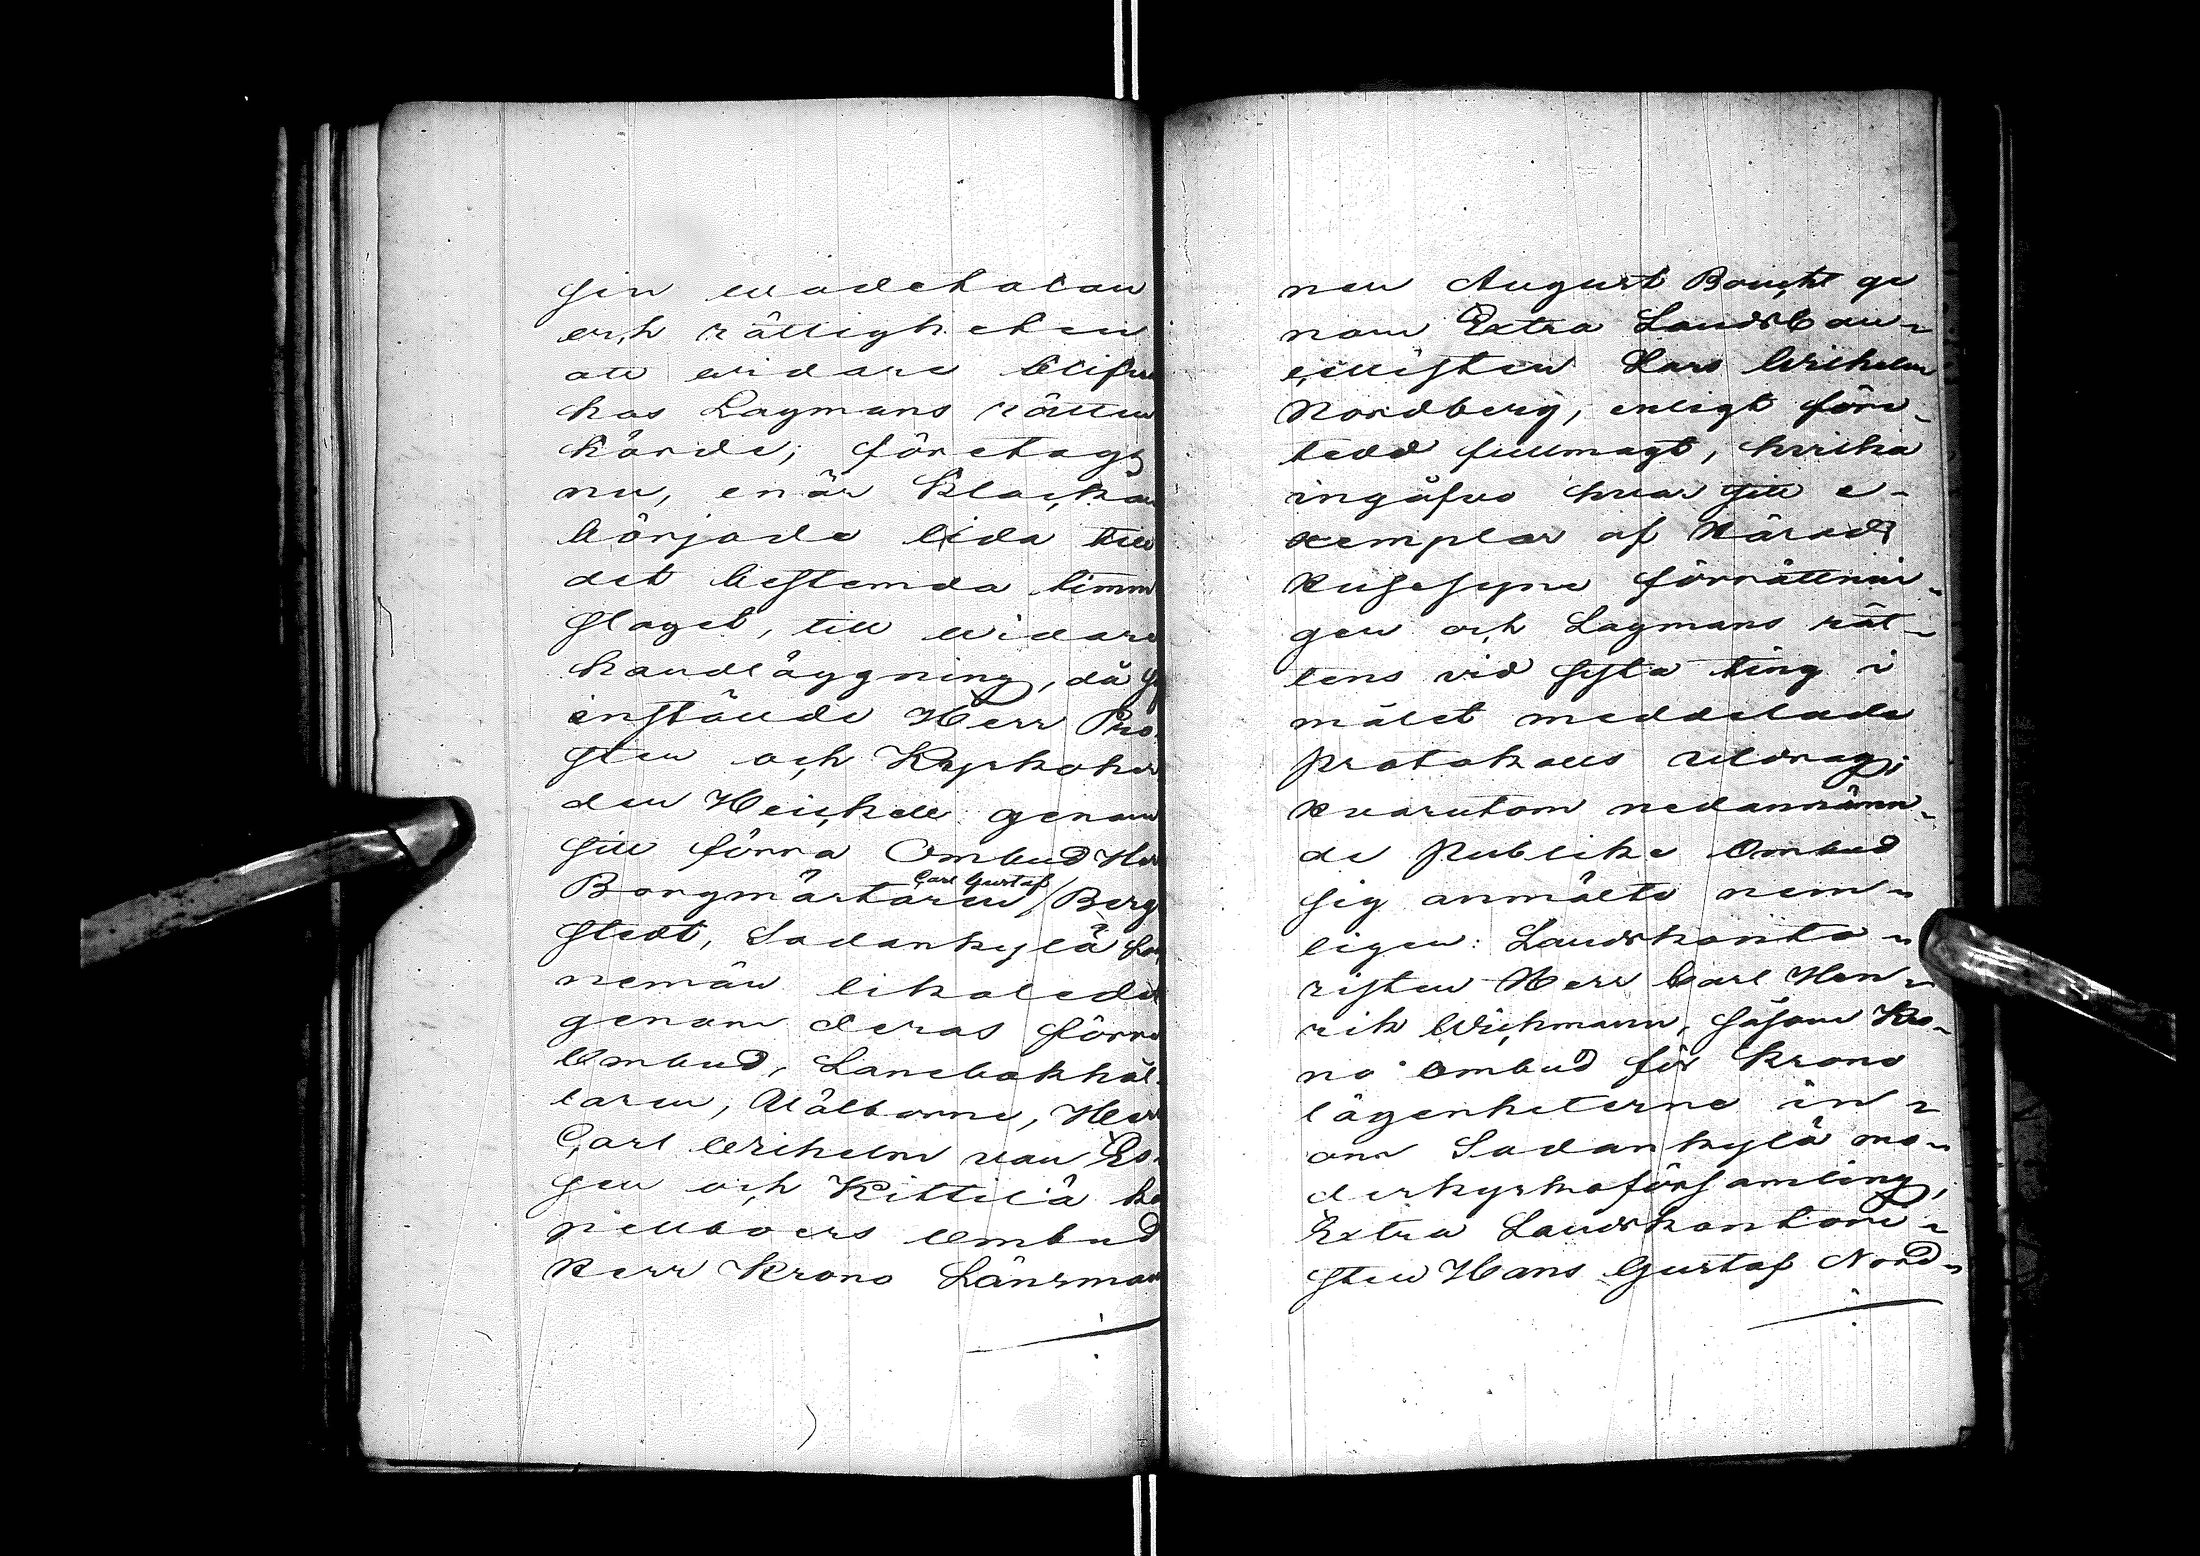 sin wadetalan
och rättigheten
att widare blifva
hos Lagmans rätten
hörde; företags
nu, enär Klockan
började lida till
det bestemda timm
slaget, till widare
handläggning, då
instäude Herr Pro-
sten och Kyrkoher
den Heickell genom
sitt förra Ombud Herr
Borgmästaren Carl Gustaf Berg
stedt, Sodankylä La
nemän likaledes
genom deras förra
Ombud, Lanebokhål-
laren, Wälborne, Herr
Carl Wilhelm von Es-
sen och Kittilä ka
pellboers Ombud
Herr Krono Länsman
nen AugustBoucht ge
nom Extra Landscan-
cellisten Lars Wilhelm
Nordberg, enligt före-
tedd fullmagt, hvilka
ingåfvo hvar sitt e-
xemplar af Härads
Husesyns förrättnin-
gen och Lagmans rät-
tens vid sista ting i
målet meddelade
Protokolls utdrag;
Hvarutom nedannämn-
de Publike Ombud
sig anmälte nem-
ligen: Landskonto-
risten Herr Carl Hen-
rik Wichmann, såsom Kro-
no Ombud för Krono
lägenheterne in-
om Sodankylä mo-
derkyrkoförsamling,
Extra Landskontori-
sten Hans Gustaf Nord-